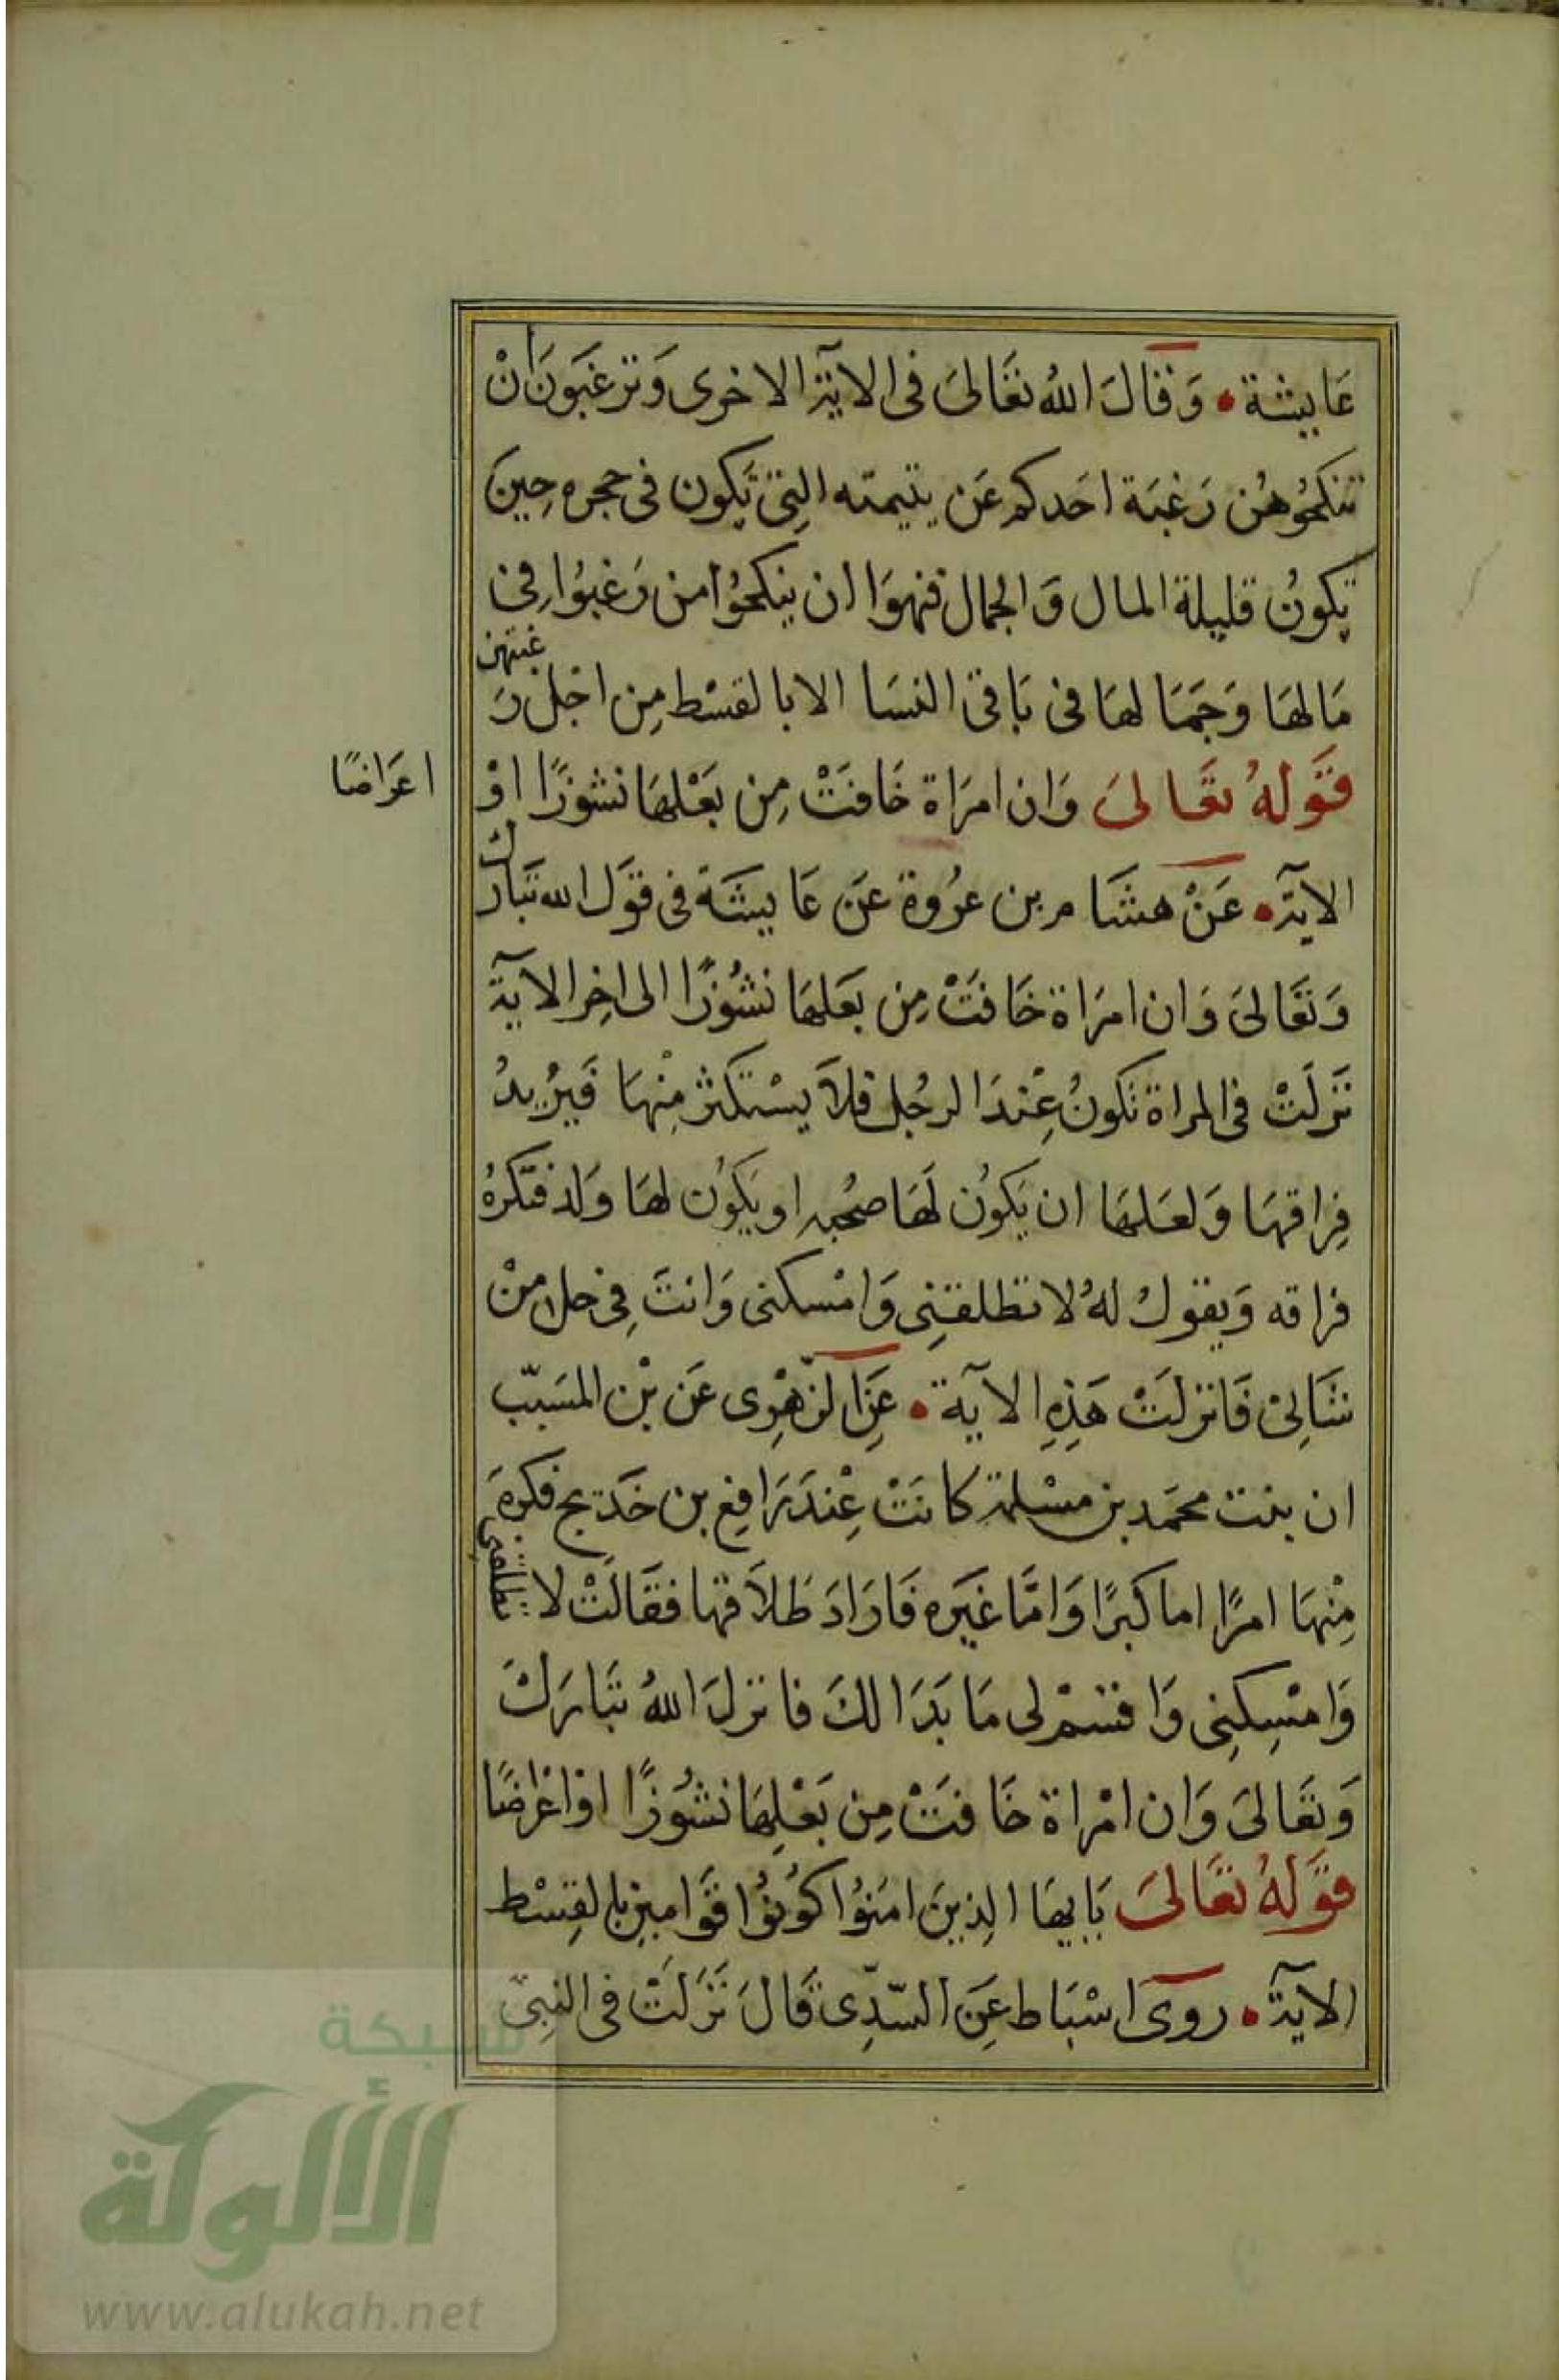 عَايشة • وَقَالَ اللهُ تعَالىَ فى الايَة الاخرى وَترغبَونَ انْ
تنكحُوهُن رَغبَة احَدكم عَن يتيمته التِى تَكون فى حجره حِينَ
تكونُ قليلة المال وَالجمال فنهوَا ان ينكحُوا من رَغبوُا فِى
مَالهَا وَجَمَالهَا فى بَاقى النسَا الا بالقسْط مِن اجْل رَغبتهن
قَوْلهُ تعَالىَ وَان امرَاة خَافتْ مِن بَعْلهَا نشوزًا اوْ
اعرَاضًا
الايَة • عَنْ هشَام بن عرُوة عَن عَايشَة فى قوَل الله تبَارك
وَتعَالىَ وَان امرَاة خَافتْ مِن بعَلهَا نشُوزًا الى اخِر الآيَة
نَزلَتْ فى المراة تكونُ عِنْدَ الرجُل فلاَ يسْتكثر مِنْهَا فَيرُيدُ
فِراقهَا وَلعَلهَا ان يَكوُن لَهَا صُحْبه او يَكوُن لهَا وَلد فتكرهُ
فراقه وَيقولُ لهُ لا تطلقنِى وَامْسكنى وَانتَ فِى حل منْ
شَانِى فَانزلَتْ هَذِهِ الآية • عَنِ الزّهْرِى عَن بْن المسَيبّ
ان بنت محمَد بن مسْلمة كانَتْ عِنْدَ رَافِع بن خَديج فكرهَ
مِنْهَا امرًا اما كبَرًا وَامَّا غَيَره فَارَادَ طَلاَقهَا فقَالَتْ لا تطلقنى
وَامْسِكِنى وَاقسَمْ لى مَا بَدَا لكَ فانزلَ اللهُ تبَارَكَ
وَتعَالىَ وَان امْراة خَافتَْ مِن بَعْلِهَا نشُوَزًا اوْ اعْراضًا
قَوْلهُ تعَالىَ يَايهَا الذِينَ امَنوُا كوُنوُا قوَامينِ بالقِسْط
الايَة • روىَ اسْبَاط عَنِ السّدِّى قَالَ نَزَلَتْ فى النبِىّ
شبكة
الألوكة
www.alukah.net